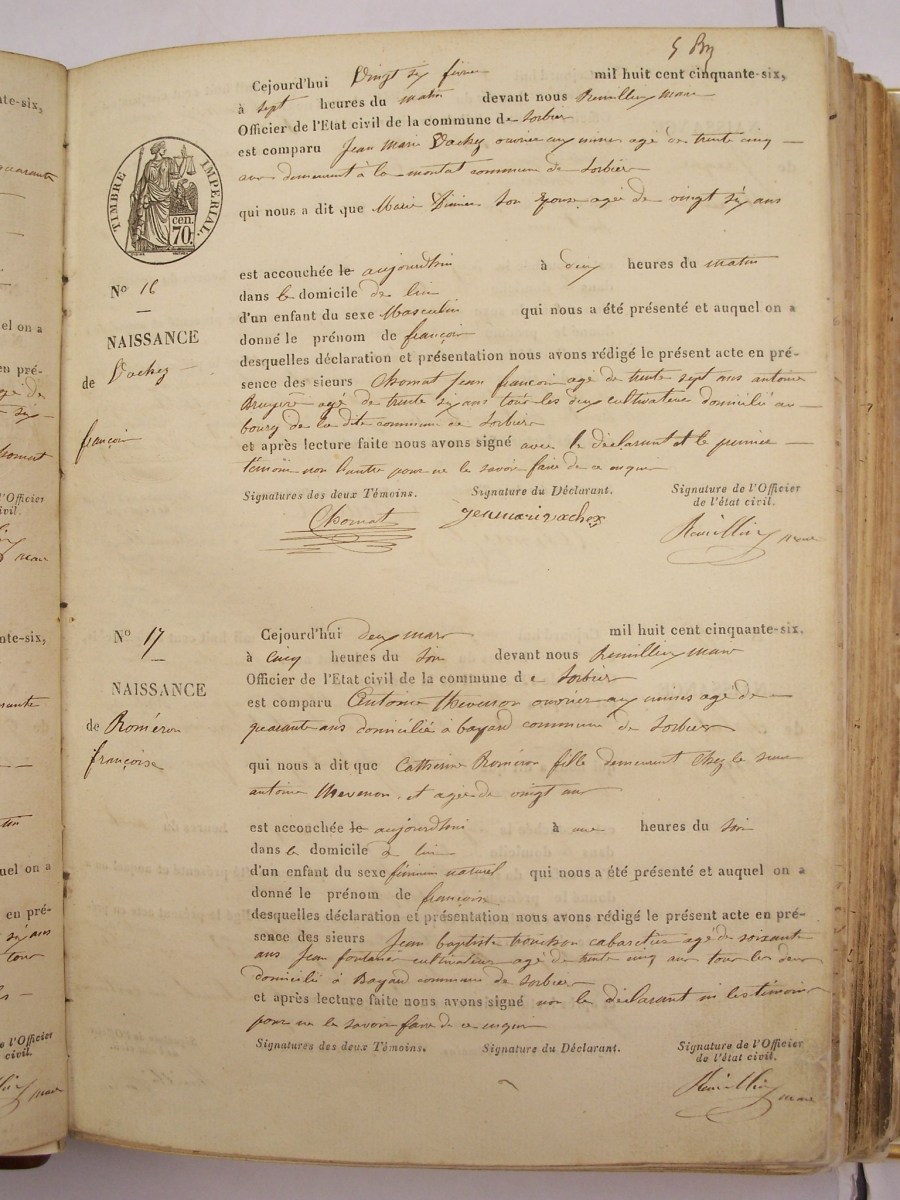 5
Cejourd'hui Vingt six fevrier mil huit cent cinquante-six,
à sept heures du matin devant nous Remillieux maire
Officier de l'Etat civil de la commune de Sorbier
est comparu Jean Marie Vachez ouvrier aux mines agé de trente cinq
ans demeurant à la montat commune de Sorbier
qui nous a dit que Marie son Epouse agée de vingt six ans
TIMBRE IMPERIAL.
cen. 70.
est accouchée le aujourd'hui à deux heures du matin
No 16
dans le domicile de lui
d'un enfant du sexe Masculin qui nous a été présenté et auquel on a
NAISSANCE
donné le prénom de françois
desquelles déclaration et présentation nous avons rédigé le présent acte en pré-
de Vachez
sence des sieurs Chomat Jean francois agé de trente sept ans antoine
Bruyere agé de trente six ans tous les deux cultivateurs domicilié au
bourg de la dite commune de Sorbier
françois
et après lecture faite nous avons signé avec le déclarant et le premier
témoin non l'autre pour ne le savoir faire de ce enquis
Signatures des deux Témoins. Signature du Déclarant. Signature de l'Officier
de l'état civil.
Chomat Jeanmarie vachez Remillieux maire
No 17
Cejourd'hui deux mars mil huit cent cinquante-six.
à Cinq heures du soir devant nous Remillieux maire
Officier de l'Etat civil de la commune de Sorbier
NAISSANCE
est comparu Antoine thevenon ouvrier aux mines agé de
quarante ans domicilié à bayard commune de Sorbier
de Roméron
françoise
qui nous a dit que Catherine Roméron fille demeurant chez le sieur
antoine thevenon et agée de vingt ans
est accouchée le aujourd'hui à une heures du soir
dans le domicile à lui
d'un enfant du sexe féminin naturel qui nous a été présenté et auquel on a
donné le prénom de françoise
desquelles déclaration et présentation nous avons rédigé le présent acte en pré-
sence des sieurs Jean baptiste cabaretier agé de soixante
ans Jean fontanes cultivateur agé de trente cinq ans tous les deux
domicilié à Bayard commune de Sorbier
et après lecture faite nous avons signé non le déclarant ni les témoins
pour ne le savoir faire de ce enquis
Signatures des deux Témoins. Signature du Déclarant. Signature de l'Officier
de l'état civil.
Remillieux maire